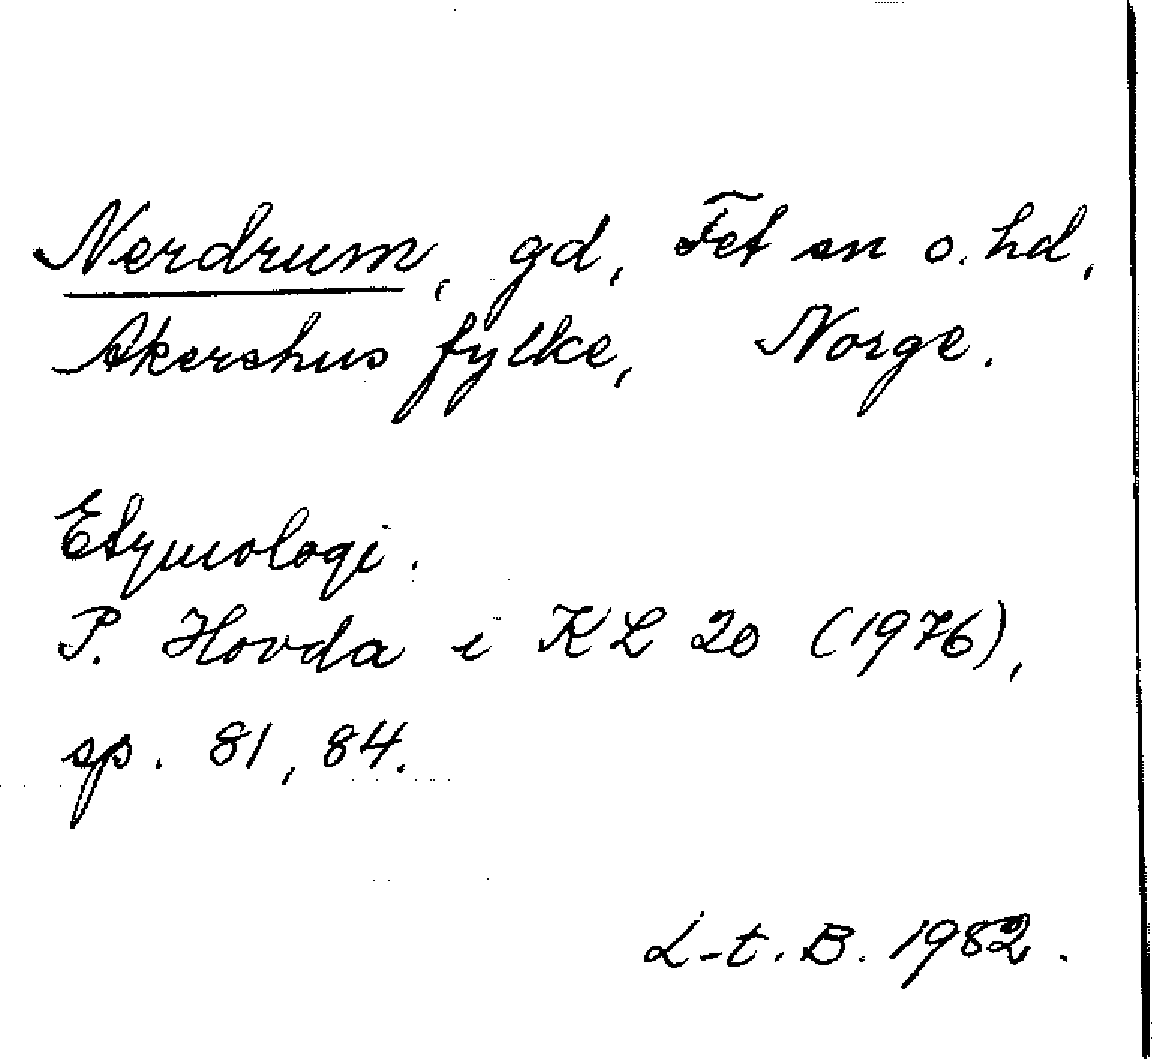 Nerdrum, gd, Fet sn o. hd,
Akershus fylke, Norge.
Etymologi.
P. Hovda i KL 20 (1976),
sp. 81, 84.
L-t. B. 1982.